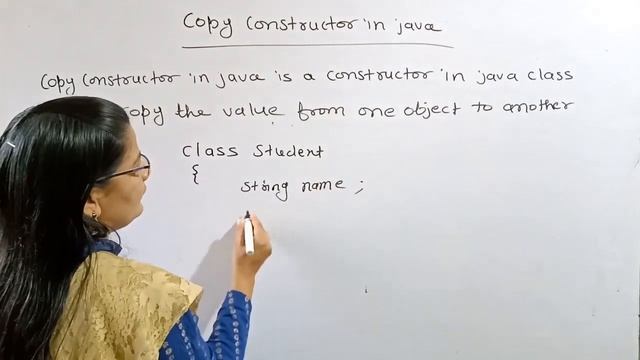 Copy Constructor in java
Copy Constructor in java is a constructor in java class
copy the value from one object to another
Class Student
{
String name ;